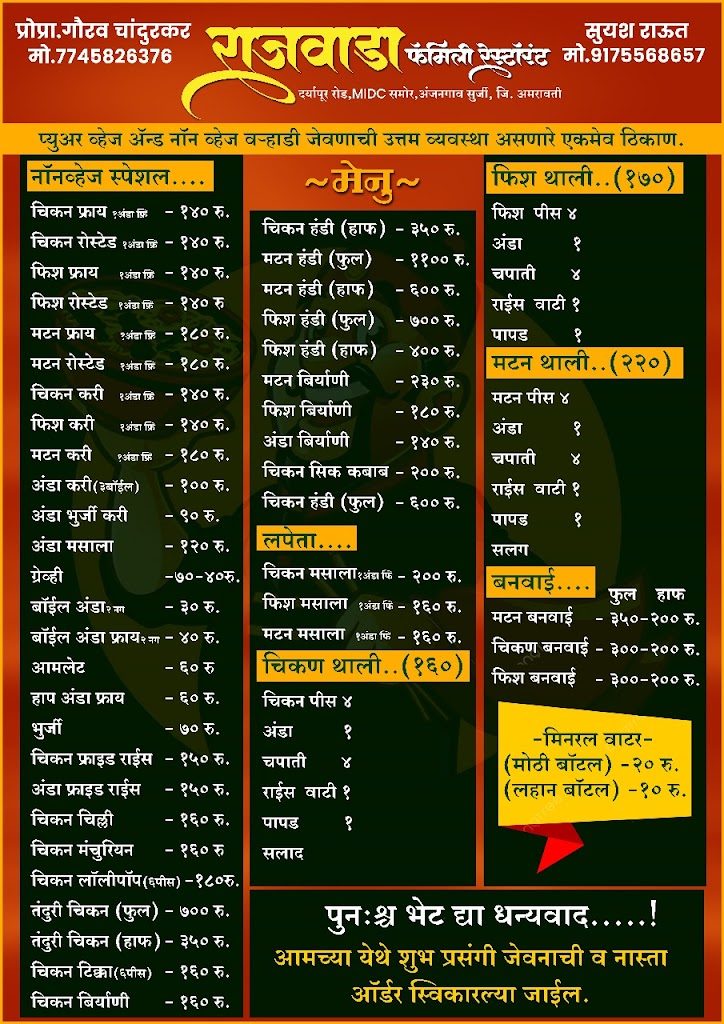 प्रोप्रा.गौरव चांदुरकर
मो.7745826376
राजवाडा फॅमिली रेस्टॉरंट
दर्यापूर रोड,MIDC समोर,अंजनगाव सुर्जी, जि. अमरावती
सुयश राऊत
मो.9175568657
प्युअर व्हेज ॲन्ड नॉन व्हेज वऱ्हाडी जेवणाची उत्तम व्यवस्था असणारे एकमेव ठिकाण.
नॉनव्हेज स्पेशल....
चिकन फ्राय १अंडा फ्रि - १४० रु.
चिकन रोस्टेड १अंडा फ्रि - १४० रु.
फिश फ्राय १अंडा फ्रि - १४० रु.
फिश रोस्टेड १अंडा फ्रि - १४० रु
मटन फ्राय १अंडा फ्रि - १८० रु.
मटन रोस्टेड १अंडा फ्रि - १८० रु.
चिकन करी १अंडा फ्रि - १४० रु.
फिश करी १अंडा फ्रि - १४० रु.
मटन करी १अंडा फ्रि - १८० रु.
अंडा करी(३बॉईल) - १०० रु.
अंडा भुर्जी करी - ९० रु.
अंडा मसाला - १२० रु.
ग्रेव्ही -७०-४०रु.
बॉईल अंडा२ नग - ३० रु.
बॉईल अंडा फ्राय२ नग - ४० रु.
आमलेट - ६० रु
हाप अंडा फ्राय - ६० रु.
भुर्जी - ७० रु.
चिकन फ्राइड राईस - १५० रु.
अंडा फ्राइड राईस - १५० रु.
चिकन चिल्ली - १६० रु.
चिकन मंचुरियन - १६० रु
चिकन लॉलीपॉप(६पीस) -१८०रु.
तंदुरी चिकन (फुल) - ७०० रु.
तंदुरी चिकन (हाफ) - ३५० रु.
चिकन टिक्का(६पीस) - १६० रु.
चिकन बिर्याणी - १६० रु.
~मेनु~
चिकन हंडी (हाफ) - ३५० रु.
मटन हंडी (फुल) - ११०० रु.
मटन हंडी (हाफ) - ६०० रु.
फिश हंडी (फुल) - ७०० रु.
फिश हंडी (हाफ) - ४०० रु.
मटन बिर्याणी - २३० रु.
फिश बिर्याणी - १८० रु.
अंडा बिर्याणी - १४० रु.
चिकन सिक कबाब - २०० रु.
चिकन हंडी (फुल) - ६०० रु.
लपेता....
चिकन मसाला१अंडा फ्रि - २०० रु.
फिश मसाला १अंडा फ्रि - १६० रु.
मटन मसाला १अंडा फ्रि - १६० रु.
चिकण थाली..(१६०)
चिकन पीस ४
अंडा १
चपाती ४
राईस वाटी १
पापड १
सलाद
फिश थाली..(१७०)
फिश पीस ४
अंडा १
चपाती ४
राईस वाटी १
पापड १
मटन थाली..(२२०)
मटन पीस ४
अंडा १
चपाती ४
राईस वाटी १
पापड १
सलग
बनवाई....
फुल हाफ
मटन बनवाई - ३५०-२०० रु.
चिकण बनवाई - ३००-२०० रु.
फिश बनवाई - ३००-२०० रु.
-मिनरल वाटर-
(मोठी बॉटल) -२० रु.
(लहान बॉटल) -१० रु.
पुनःश्च भेट द्या धन्यवाद.....!
आमच्या येथे शुभ प्रसंगी जेवनाची व नास्ता
ऑर्डर स्विकारल्या जाईल.